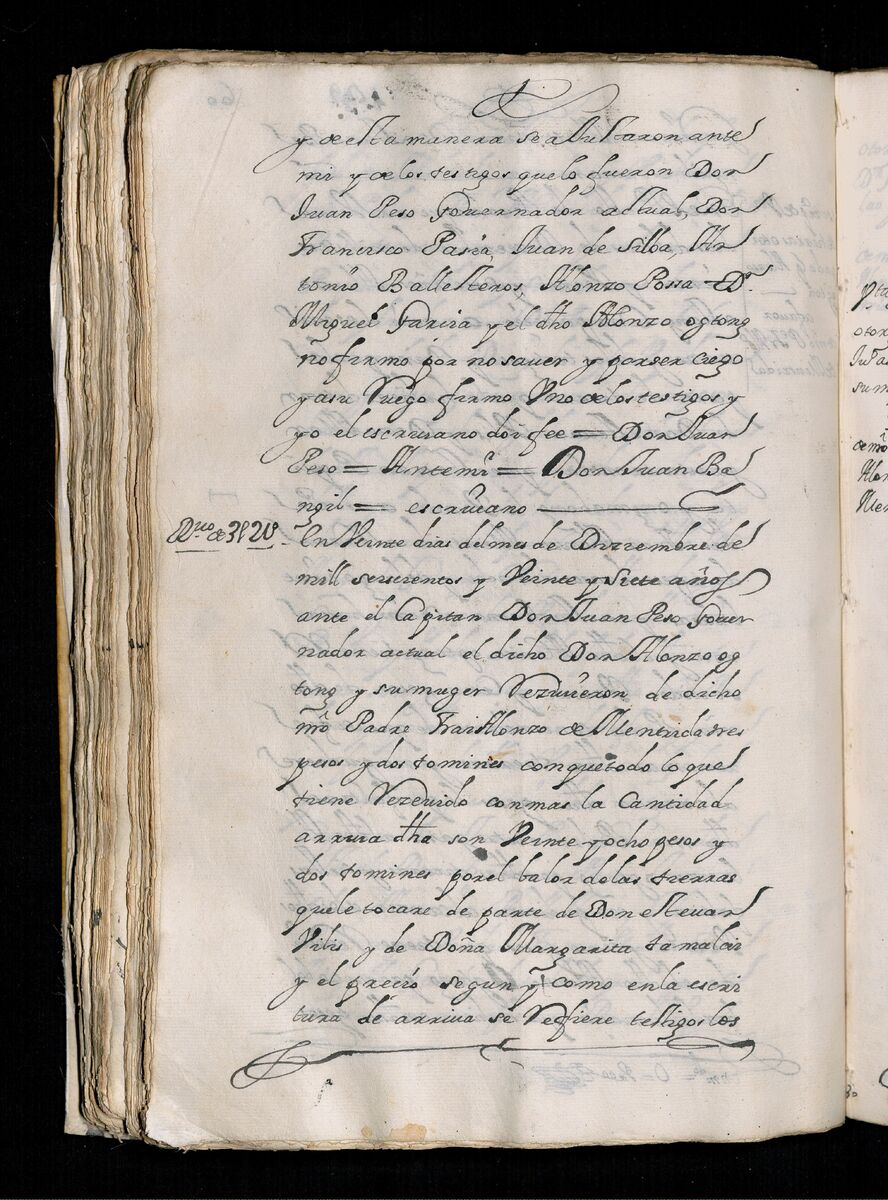 y de esta manera se aJustaron ante
mi y de los testigos que lo fueron Don
Juan Peso Governador actual, Don
Francisco Pasia, Juan de Silba, An
tonio Ballesteros, Alonzo Possa D.
Miguel Garcia y el dho Alonzo ogtong
no firmo por no saver y por ser ciego
y a su Ruego firmo Vno de los testigos y
yo el escrivano doi fee = Don Juan
Peso = Ante mi = Don Juan Ba
ngil = escrivano
En Veinte dias del mes de Diziembre de
mill seiscientos y Veinte y siete años
ante el Capitan Don Juan Peso Gover
nador actual el dicho Don Alonzo og
tong y su muger Rezivieron de dicho
mro Padre Frai Alonzo de Mentrida tres
pesos y dos tomines con que todo lo que
tiene Rezevido con mas la Cantidad
arriva dha son Veinte y ocho pesos y
dos tomines por el balor de las tierras
que le tocare de parte de Don estevan
Pilis y de Doña Margarita tamalai
y el precio segun y como en la escri
tura de arriva se Refiere testigos los